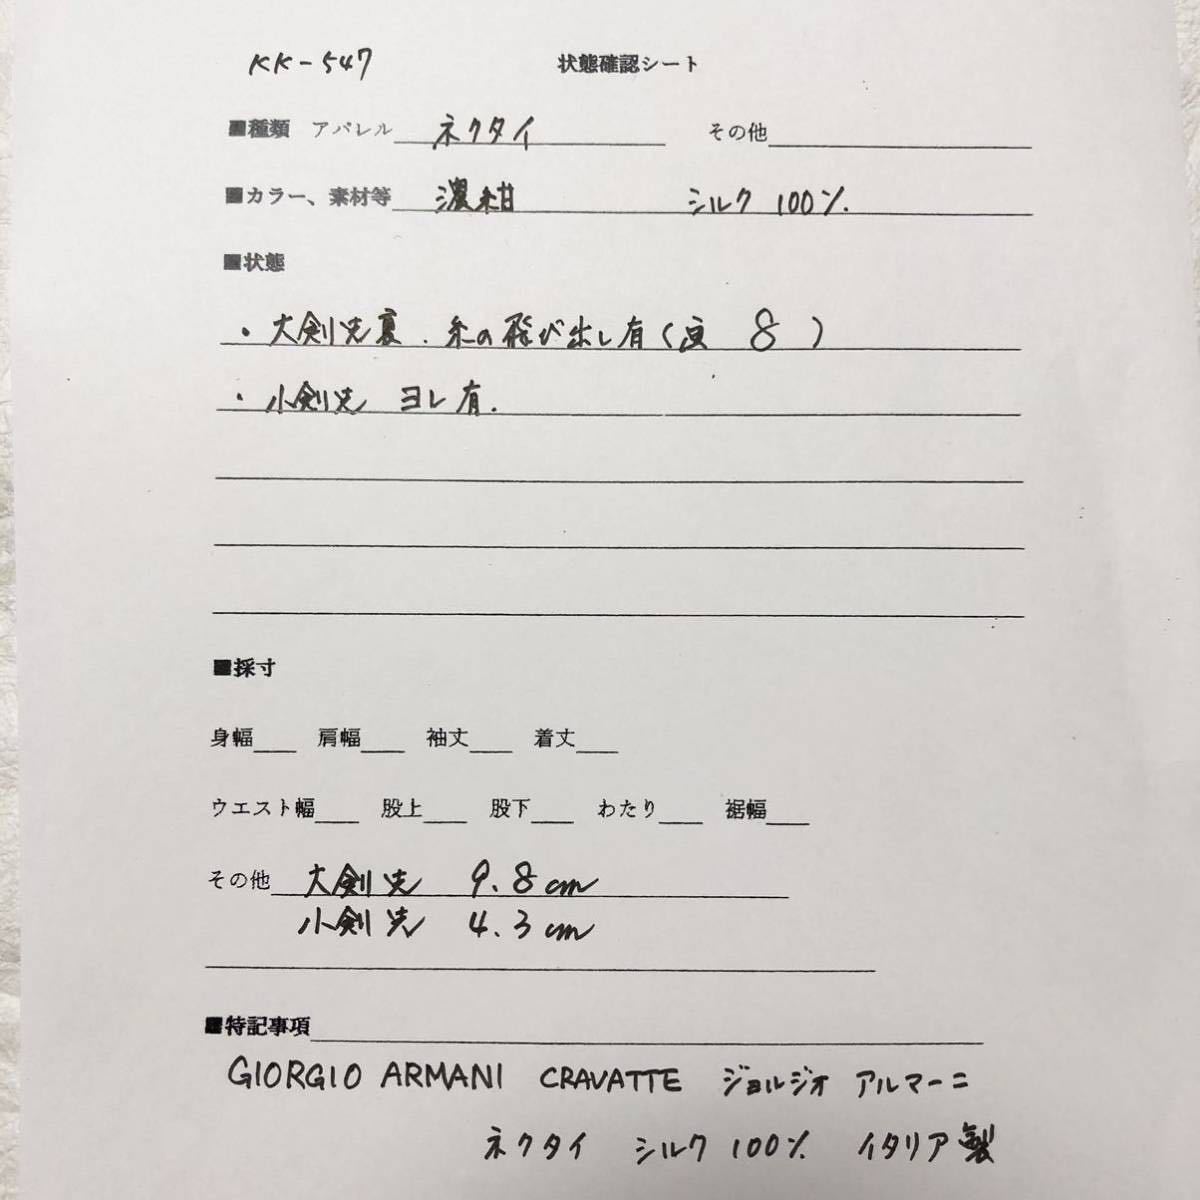 KK-547 状態確認シート
■種類 アパレル ネクタイ その他
■カラー、素材等 濃紺 シルク 100%
■状態
・大剣先裏、糸の飛び出し有( 8 )
・小剣先 ヨレ有.
■採寸
身幅 肩幅 袖丈 着丈
ウエスト幅 股上 股下 わたり 裾幅
その他 大剣先 9.8cm
小剣先 4.3cm
■特記事項
GIORGIO ARMANI CRAVATTE ジョルジオ アルマーニ
ネクタイ シルク 100% イタリア製